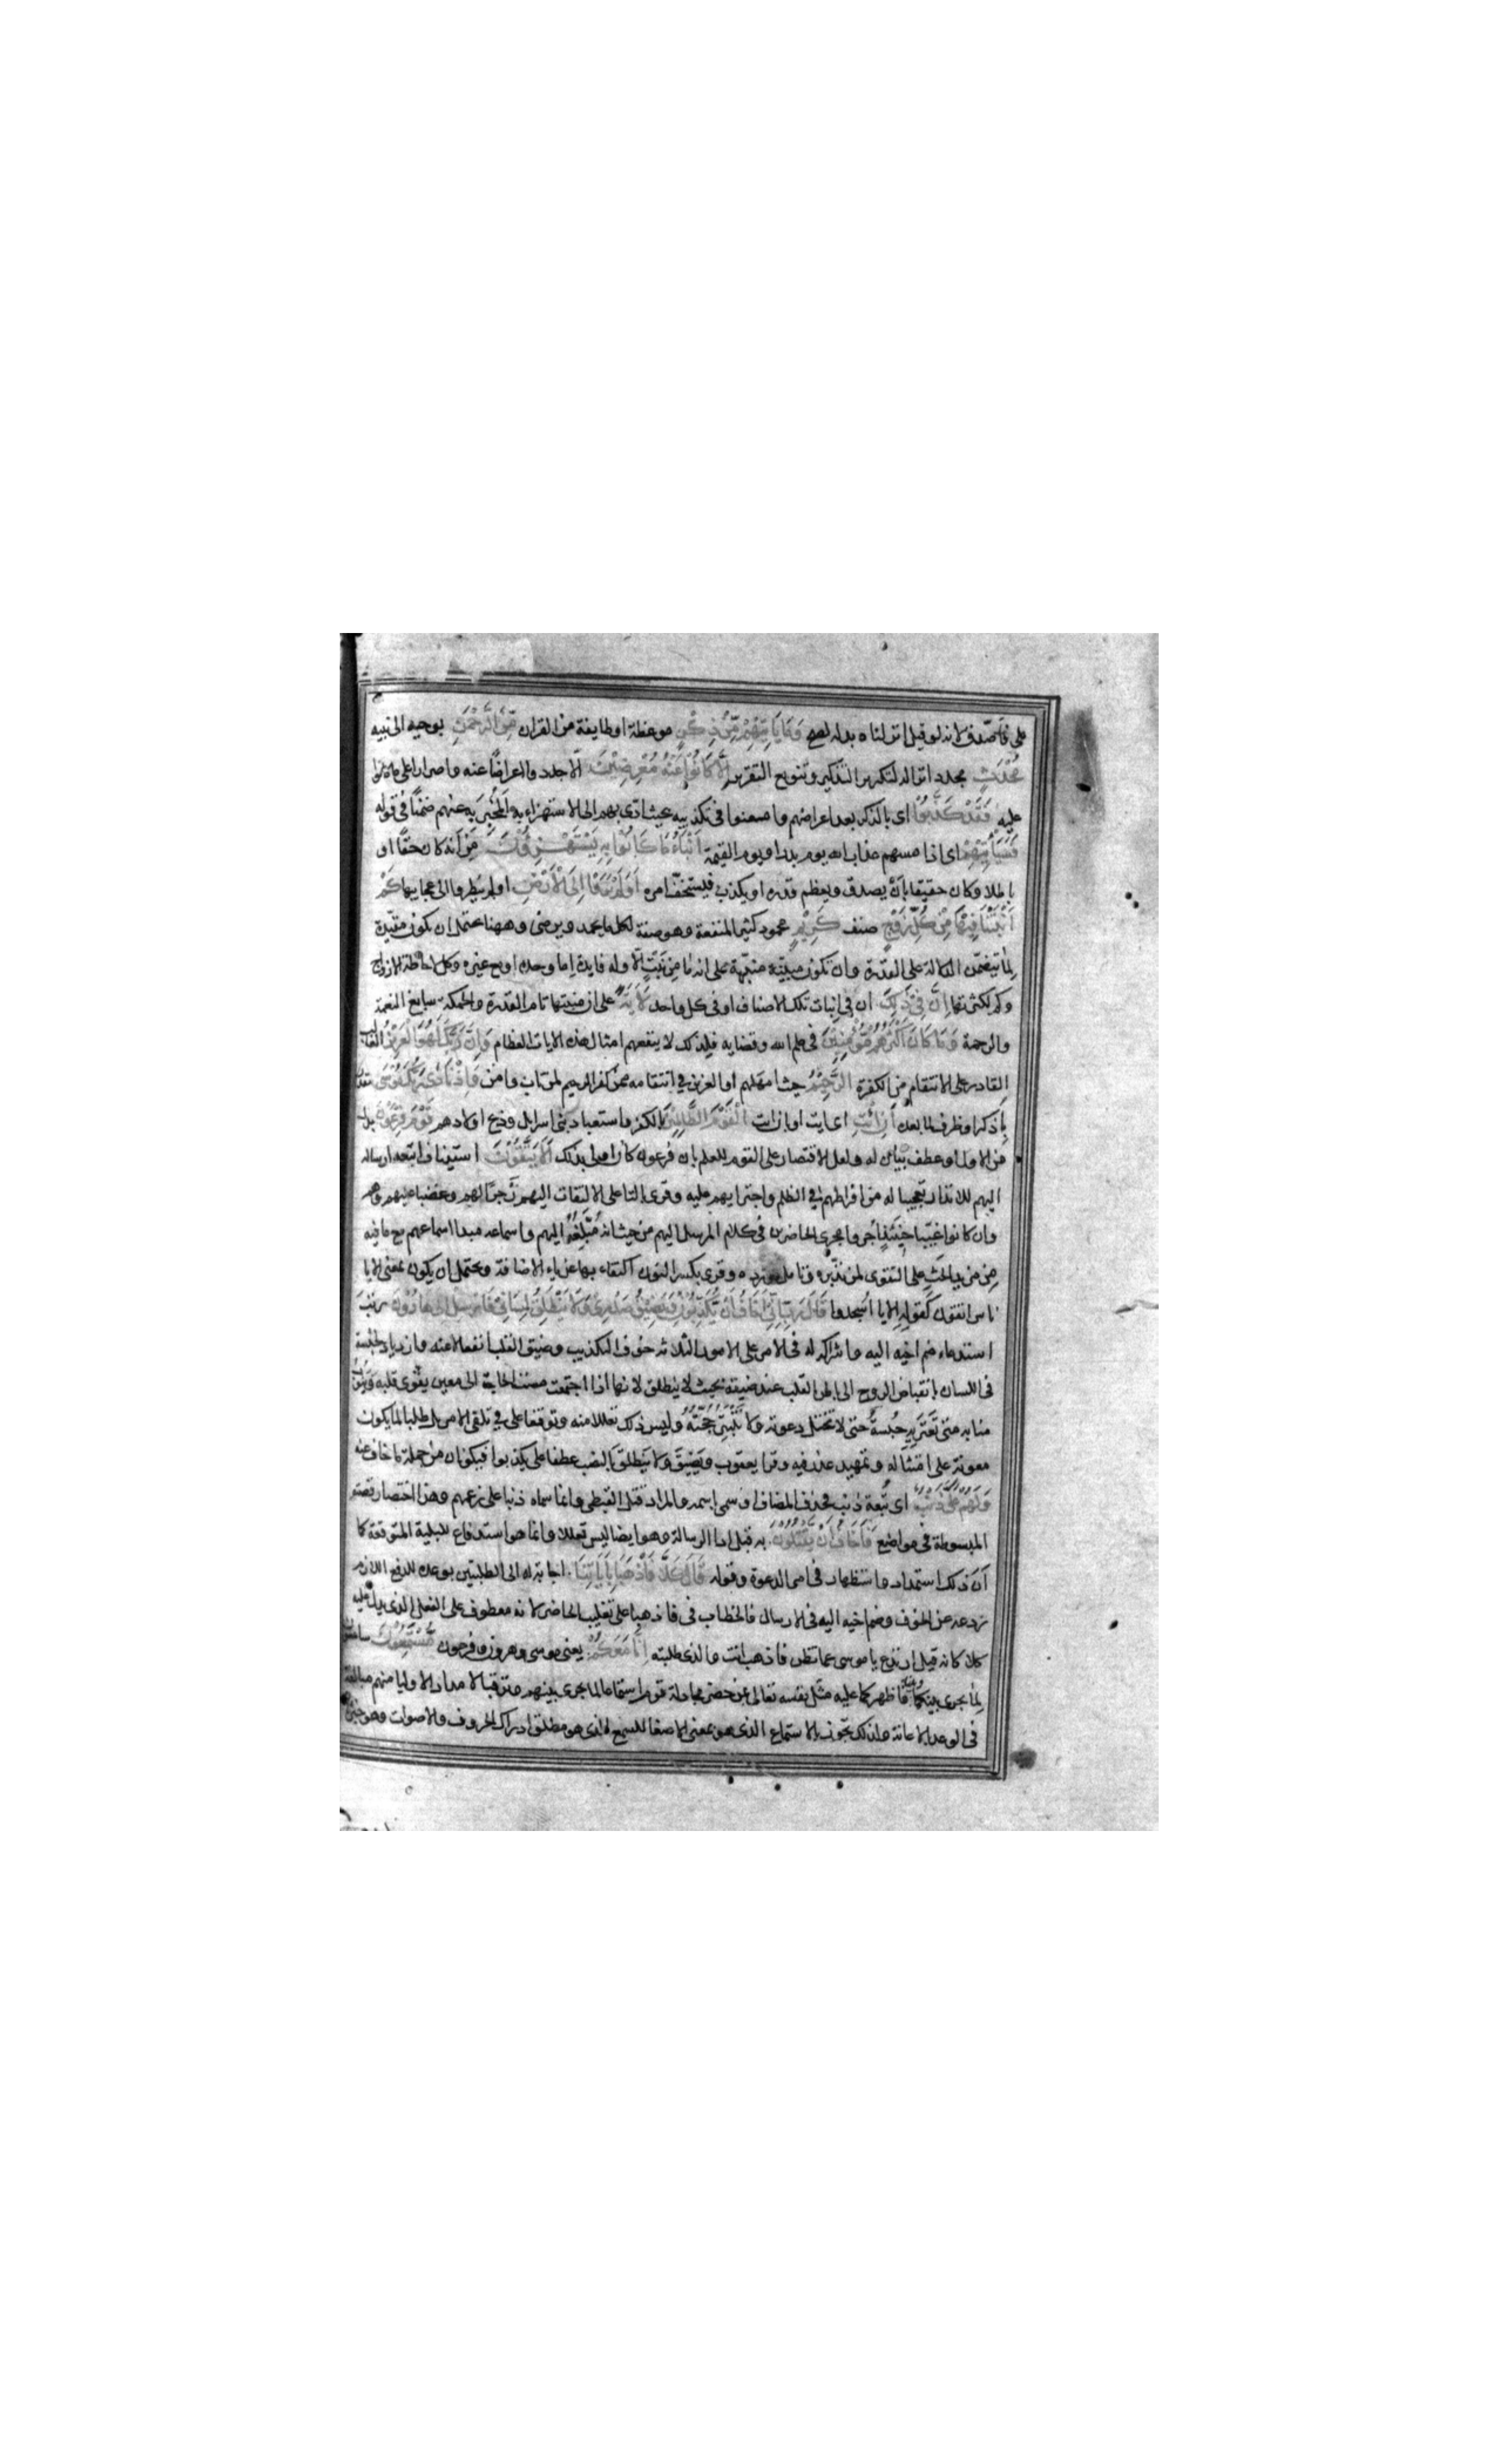 على فاصدق لانه لو قيل انزلنا بدله لصح وَمَا يَأْتِيهِمْ مِنْ ذِكْرٍ موعظة او طايفة من القران مِنَ الرَّحْمَنِ يوحيه الى نبيه
مُحْدَثٍ مجدد انزاله لتكرير التذكير وتنويع التقرير إِلَّا كَانُوا عَنْهُ مُعْرِضِينَ الا جددوا اعراضا عنه واصرارا على ما كانوا
عليه فَقَدْ كَذَّبُوا اى بالذكر بعد اعراضهم وامعنوا فى تكذيبه بحيث ادى بهم الى الاستهزاء به المُخْبَرَ به عنهم ضمنا فى قوله
فَسَيَأْتِيهِمْ اى اذا مسهم عذاب الله يوم بدر او يوم القيمة أَنْبَاءُ مَا كَانُوا بِهِ يَسْتَهْزِءُونَ مِن أنه كان حقا او
باطلا وكان حقيقا بأن يصدق ويعظم قدره او يكذب فيستخف امره أَوَلَمْ يَرَوْا إِلَى الْأَرْضِ اولم ينظروا الى عجايبها كَمْ
أَنْبَتْنَا فِيهَا مِنْ كُلِّ زَوْجٍ صنف كَرِيمٍ محمود كثير المنفعة وهو صفة لكل ما يحمد ويرضى وههنا يحتمل ان يكون مقيدة
لما يتضمن الدلالة على القدرة وان تكون مبينة منبهة على انه ما من نبت الا وله فايدة اما وحده او مع غيره وكل لاحاطة الازواج
وكم لكثرتها إِنَّ فِي ذَلِكَ ان فى إنبات تلك الاصناف او فى كل واحد لَآيَةً على ان منبتها تام القدرة والحكمة سابغ النعمة
والرحمة وَمَا كَانَ أَكْثَرُهُمْ مُؤْمِنِينَ فى علم الله وقضايه فلذلك لا ينفعهم امثال هذه الايات العظام وَإِنَّ رَبَّكَ لَهُوَ الْعَزِيزُ الغالب
القادر على الانتقام من الكفرة الرَّحِيمُ حيث امهلهم او العزيز فى انتقامه ممن كفر الرحيم لمن تاب وامن وَإِذْ نَادَى رَبُّكَ مُوسَى مقدر
باذكر او ظرف لما بعده أَنِ ائْتِ اى ايت او بان ايت الْقَوْمَ الظَّالِمِينَ بالكفر واستعباد بنى اسرايل وذبح اولادهم قَوْمَ فِرْعَوْنَ بدل
من الاول او عطف بيان له ولعل الاقتصار على القوم للعلم بان فرعون كان اولى بذلك أَلَا يَتَّقُونَ استيناف اتبعه ارساله
اليهم للانذار تعجيبا له من افراطهم فى الظلم واجترايهم عليه وقرى بالتا على الالتفات اليهم زجرا لهم وغضبا عليهم وهم
وان كانوا غيبا حينئذ أجروا مجرى الحاضرين فى كلام المرسل اليهم من حيث انه مبلغه اليهم واسماعه مبدا اسماعهم مع ما فيه
من مزيد الحث على التقوى لمن تدبره وتامل مورده وقرى بكسر النون اكتفاء بها عن ياء الاضافة ويحتمل ان يكون بمعنى الا يا
ناس اتقون كقوله الا يا اسجدوا قَالَ رَبِّ إِنِّي أَخَافُ أَنْ يُكَذِّبُونِ وَيَضِيقُ صَدْرِي وَلَا يَنْطَلِقُ لِسَانِي فَأَرْسِلْ إِلَى هَارُونَ رتب
استدعاء ضم اخيه اليه واشراكه له فى الامر على الامور الثلاثه خوف التكذيب وضيق القلب انفعالا عنه وازدياد الحبسة
فى اللسان بانقباض الروح الى باطن القلب عند ضيقه بحيث لا ينطلق لانها اذا اجتمعت مست الحاجة الى معين يقوى قلبه وينوب
منابه متى تعتريه حبسة حتى لا تختل دعوته ولا تنبتر حجته وليس ذلك تعللا منه وتوقفا على فى تلقى الامر بل طلبا لما يكون
معونة على امتثاله وتمهيد عذر فيه وقرا يعقوب ويضيقَ ولا ينطلقَ بالنصب عطفا على يكذبوا فيكونان من جملة ما خاف منه
وَلَهُمْ عَلَيَّ ذَنْبٌ اى تبعة ذنب فحذف المضاف او سمى باسمه والمراد قتل القبطى وانما سماه ذنبا على زعمهم وهذا اختصار قصته
المبسوطة فى مواضع فَأَخَافُ أَنْ يَقْتُلُونِ به قبل ادا الرسالة وهو ايضا ليس تعللا وانما هو استدفاع للبلية المتوقعة كما
أن ذلك استمداد واستظهار فى امر الدعوة وقوله قَالَ كَلَّا فَاذْهَبَا بِآيَاتِنَا اجابة له الى الطلبتين بوعده للدفع اللازم
ردعه عن الخوف وضم اخيه اليه فى الارسال فالخطاب فى فاذهبا على تغليب الحاضر لانه معطوف على الفعل الذى يدل عليه
كلا كانه قيل ارتدع يا موسى عما تظن فاذهب انت والذى طلبته إِنَّا مَعَكُمْ يعنى موسى وهرون وفرعون مُسْتَمِعُونَ سامعون
لما يجرى بينكما وبينه فاظهركما عليه مثل نفسه تعالى بمن حضر مجادلة قوم استماعا لما يجرى بينهم وترقبا لامداد الاوليا منهم مبالغة
فى الوعد بالاعانة ولذلك تجوز بالاستماع الذى هو بمعنى الاصغا للسمع الذى هو مطلق ادراك الحروف والاصوات وهو خبر